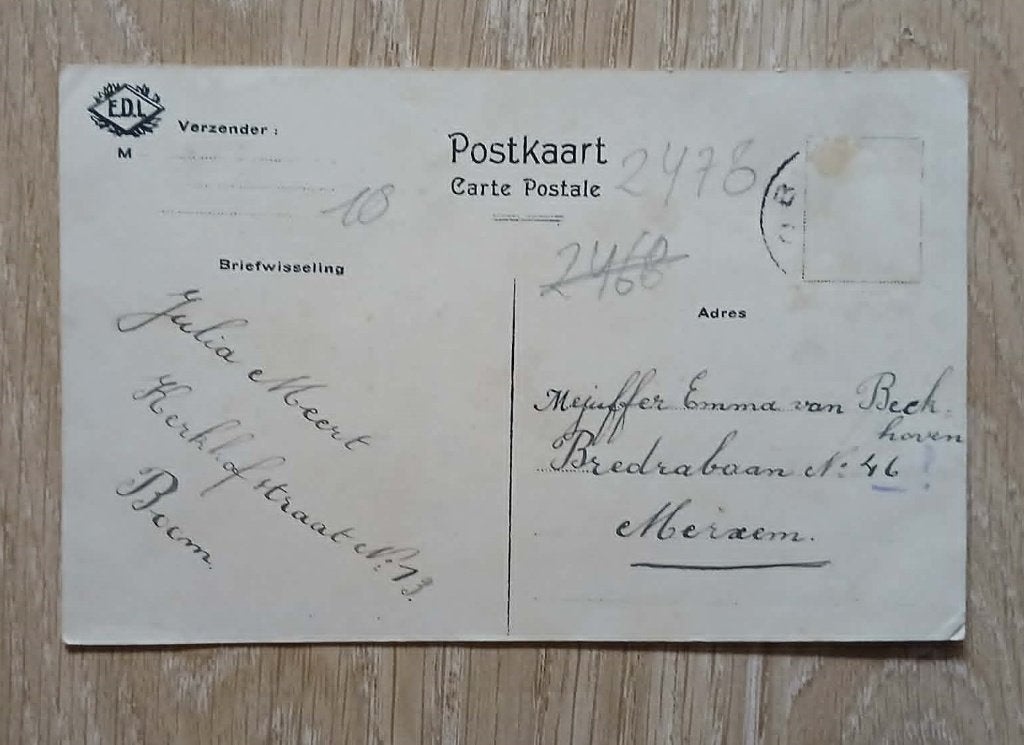 E.D.L
M
Verzender :
Postkaart
Carte Postale
2478
18
2468
Briefwisseling
Adres
Julia Meert
Kerkhofstraat N: 13.
Boom.
Mejuffer Emma van Beck
hoven
Bredabaan N: 46 !
Merxem.